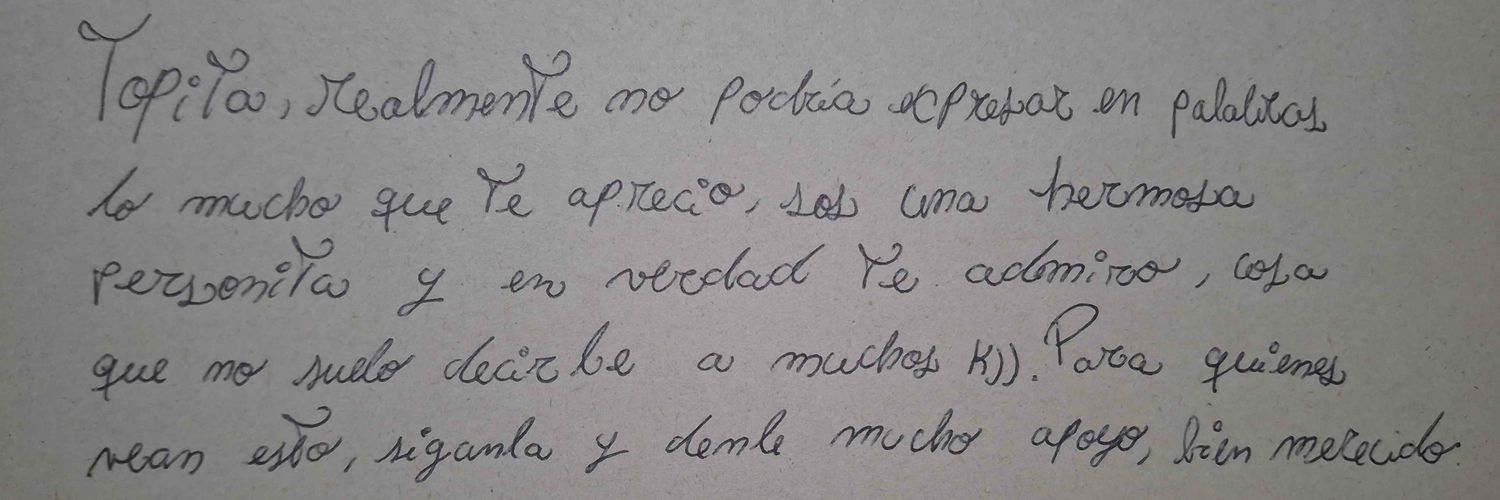 Topita, realmente no podría expresar en palabras
lo mucho que te aprecio, sos una hermosa
personita y en verdad te admiro, cosa
que no suelo decirle a muchos kjj. Para quienes
vean esto, siganla y denle mucho apoyo, bien merecido.